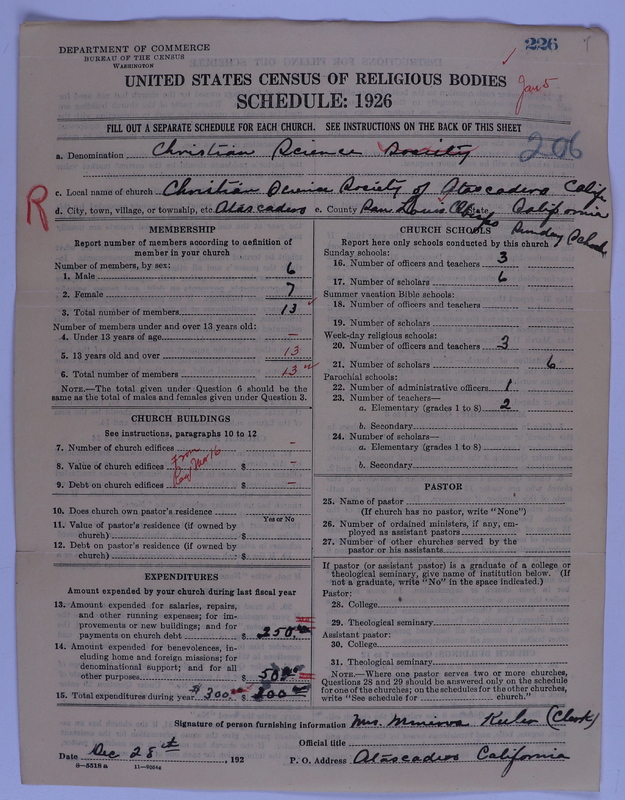 226
DEPARTMENT OF COMMERCE
BUREAU OF THE CENSUS
WASHINGTON
UNITED STATES CENSUS OF RELIGIOUS BODIES
Jan 5
SCHEDULE: 1926
FILL OUT A SEPARATE SCHEDULE FOR EACH CHURCH. SEE INSTRUCTIONS ON THE BACK OF THIS SHEET
206
a. Denomination Christian Science Society
c. Local name of church Christian Science Society of Atascadero Calif
R
d. City, town, village, or township, etc. Atascadero e. County San Louis Obispo State California
MEMBERSHIP
Report number of members according to definition of
member in your church
Number of members, by sex:
1. Male 6
2. Female 7
3. Total number of members 13
Number of members under and over 13 years old:
4. Under 13 years of age –
5. 13 years old and over 13
6. Total number of members 13
NOTE.—The total given under Question 6 should be the
same as the total of males and females given under Question 3.
CHURCH BUILDINGS
See instructions, paragraphs 10 to 12
7. Number of church edifices –
8. Value of church edifices $ –
9. Debt on church edifices $ –
From
10. Does church own pastor's residence
Yes or No
11. Value of pastor's residence (if owned by
church) $
12. Debt on pastor's residence (if owned by
church) $
EXPENDITURES
Amount expended by your church during last fiscal year
13. Amount expended for salaries, repairs,
and other running expenses; for im-
provements or new buildings; and for
payments on church debt $ 250.00
14. Amount expended for benevolences, in-
cluding home and foreign missions; for
denominational support; and for all
other purposes $ 50.00
15. Total expenditures during year $ 300. $ 300.00
CHURCH SCHOOLS
Sunday School
Report here only schools conducted by this church
Sunday schools:
16. Number of officers and teachers 3
17. Number of scholars 6
Summer vacation Bible schools:
18. Number of officers and teachers
19. Number of scholars
Week-day religious schools:
20. Number of officers and teachers 3
21. Number of scholars 6
Parochial schools:
22. Number of administrative officers 1
23. Number of teachers—
a. Elementary (grades 1 to 8) 2
b. Secondary
24. Number of scholars—
a. Elementary (grades 1 to 8)
b. Secondary
PASTOR
25. Name of pastor
(If church has no pastor, write "None")
26. Number of ordained ministers, if any, em-
ployed as assistant pastors
27. Number of other churches served by the
pastor or his assistants
If pastor (or assistant pastor) is a graduate of a college or
theological seminary, give name of institution below. (If
not a graduate, write "No" in the space indicated.)
Pastor:
28. College
29. Theological seminary
Assistant pastor:
30. College
31. Theological seminary
NOTE.—Where one pastor serves two or more churches,
Questions 28 and 29 should be answered only on the schedule
for one of the churches; on the schedules for the other churches,
write "See schedule for church."
Signature of person furnishing information Mrs. Minerva (Clerk)
Official title
Date Dec 28th, 192 P. O. Address Atascadero California
8—5518 a 11—9058a